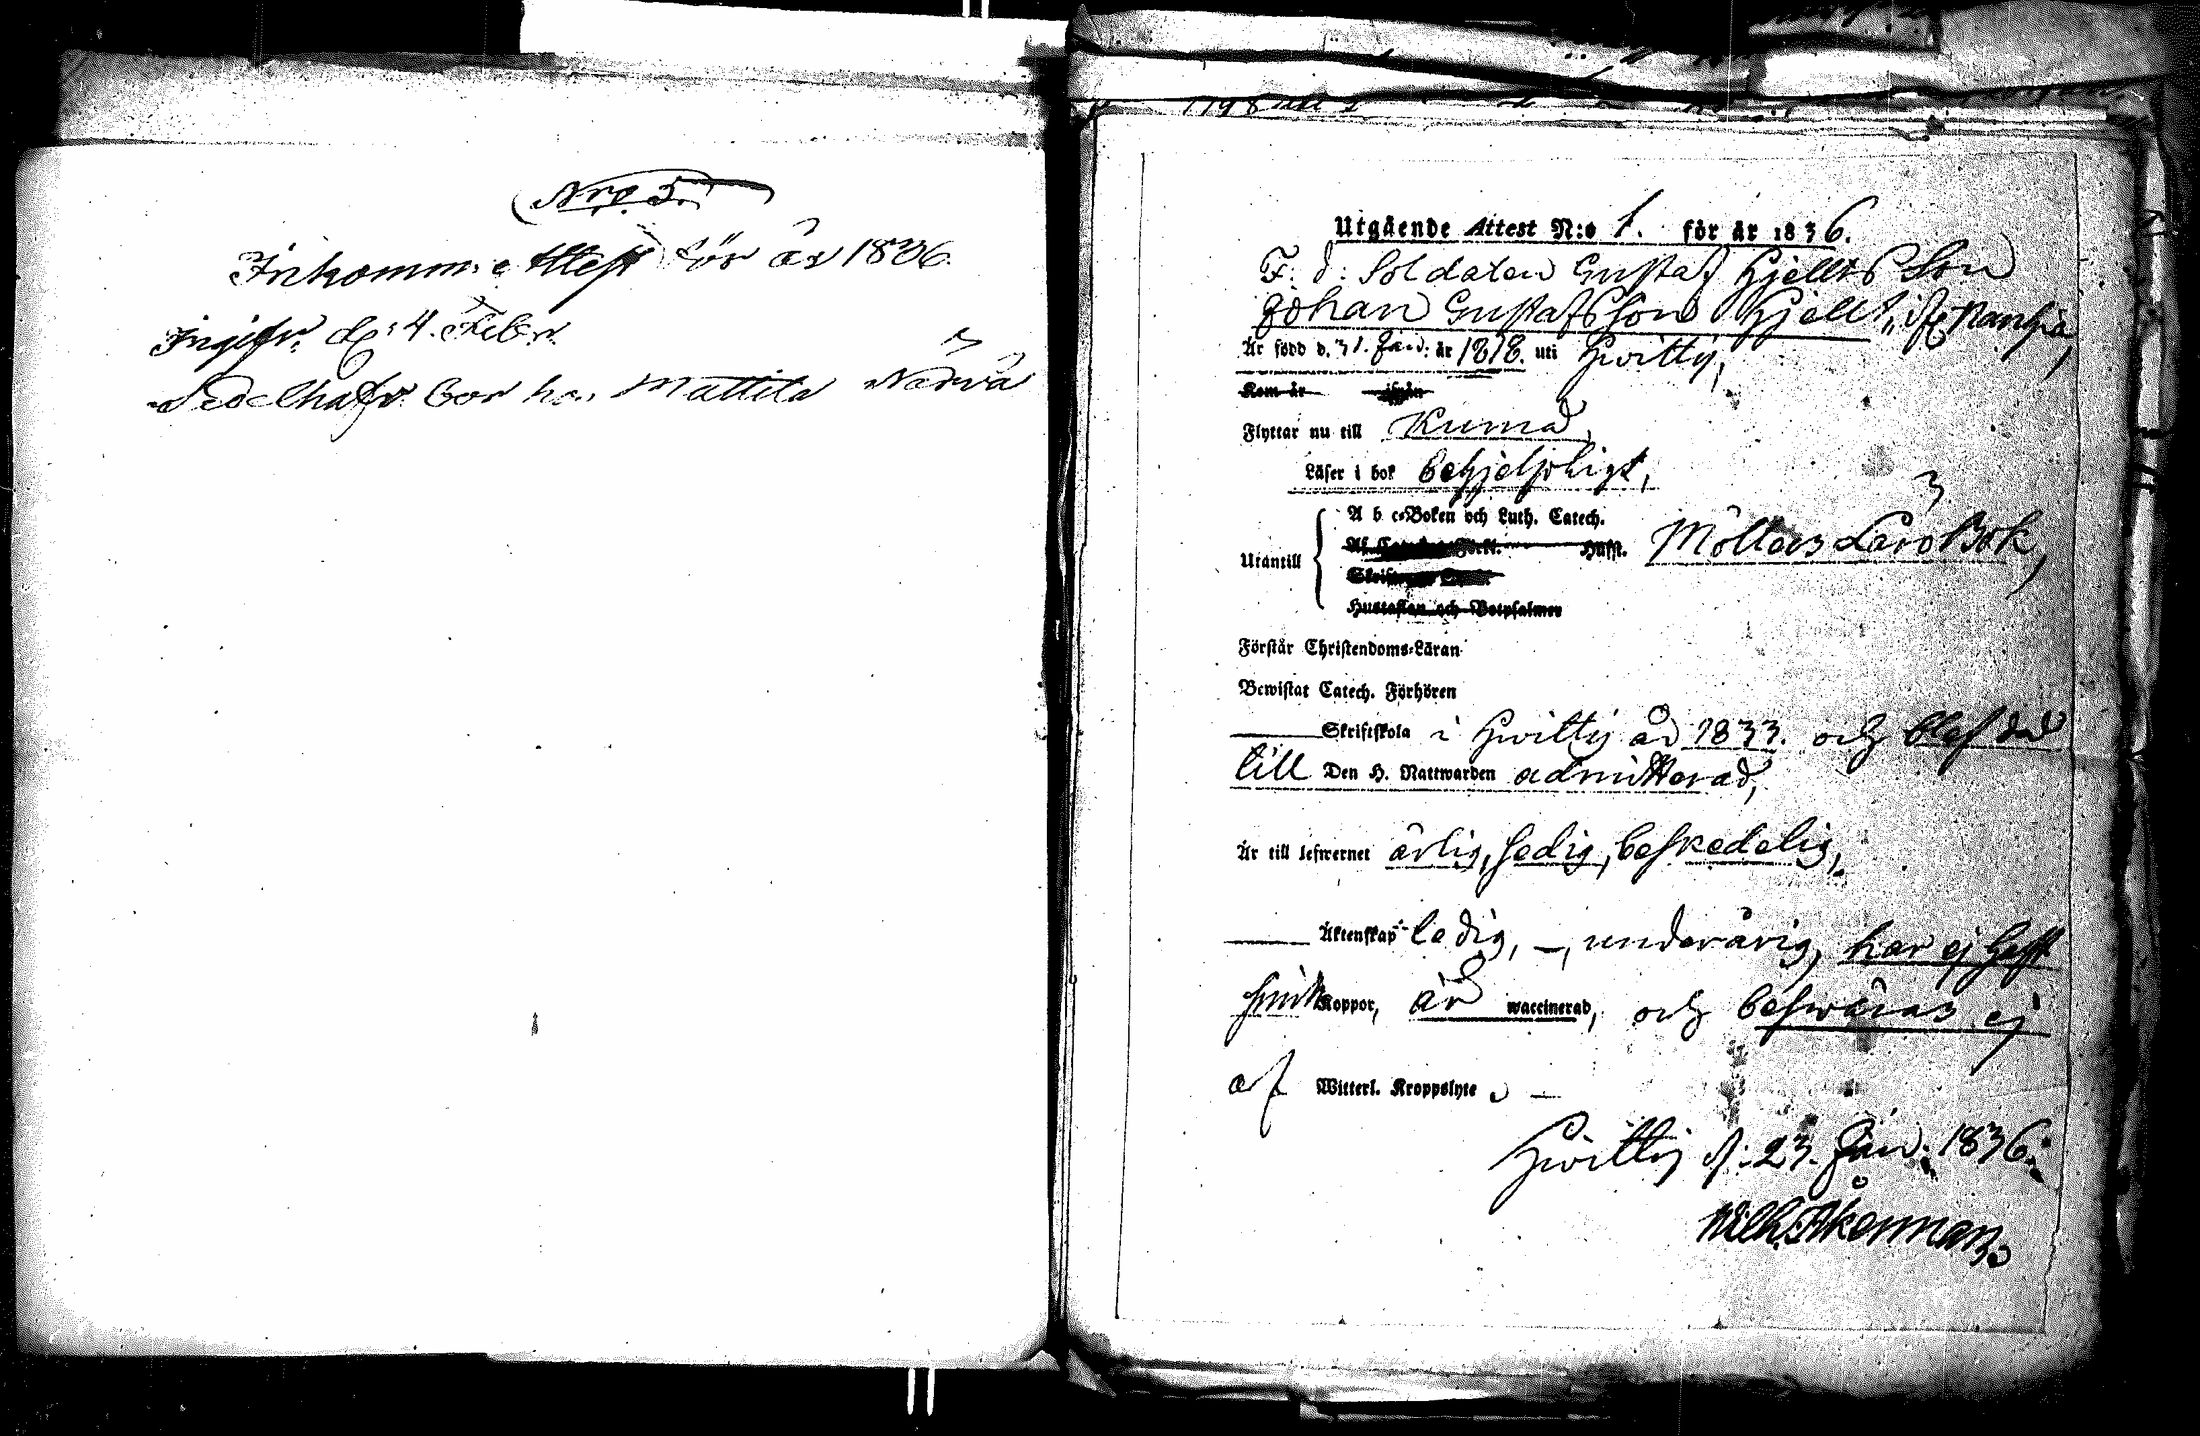 Nro 5.
Inkomm: e Attest för år 1836.
Ingifv: d: 4. Febr.
Sedelhafv: bor hos Mattila Närvä
Utgående Attest N:o 1. för år 1836.
F. d: Soldaten Gustaf Hjellts Son
Johan Gustafsson Hjellt,
Är född d. 31. Jan: år 1818. uti Hwittis,
Kom år ifrån
Flyttar nu till Kumo,
Läser i bok behjelpligt,
A b c-Boken och Luth. Catech.
Utantill Hufst. Möllers Läro Bok,
Hustaflan och Botpsalmer
Förstår Christendoms-Läran
Bewistat Catech. Förhören
Skriftskola i Hwittis år 1833. och blef då
till Den H. Nattwarden admitterad,
Är till lefwernet ärlig, sedig, beskedelig,
Äktenskap ledig, —, underårig, har ej haft
Koppor, är waccinerad, och beswäras ej
af Witterl. Kroppslyte —
Hwittis d: 23. Jan: 1836.
Wilh. Åkerman.